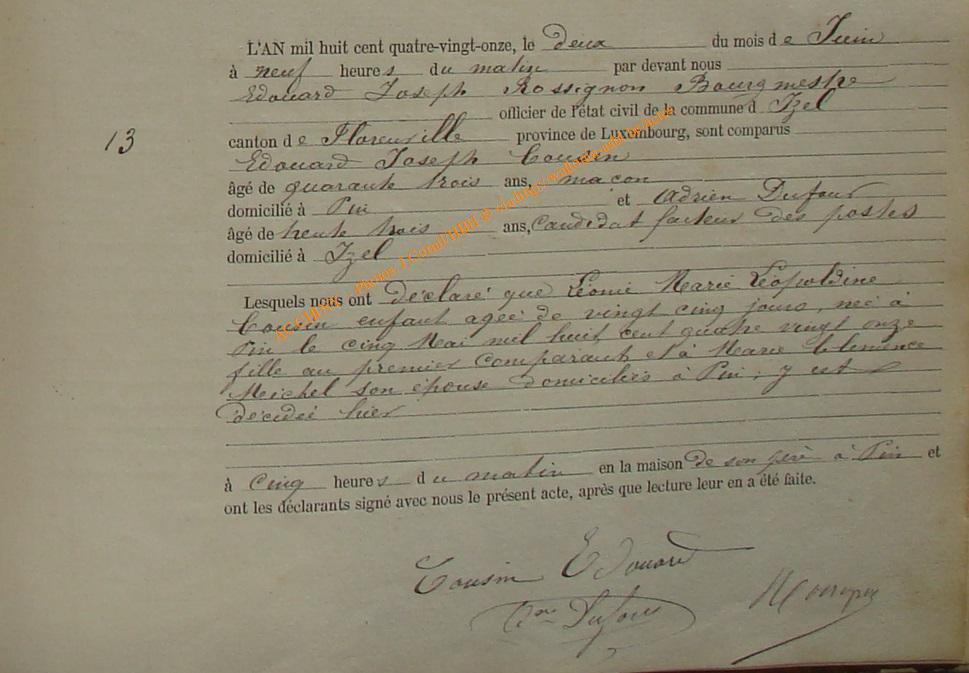 L'AN mil huit cent quatre-vingt-onze, le deux du mois de Juin
à neuf heures du matin par devant nous
Edouard Joseph Rossignon Bourgmestre
officier de l'état civil de la commune d Izel
13
canton de Florenville province de Luxembourg, sont comparus
Edouard Joseph Cousin
âgé de quarante trois ans, maçon
domicilié à Pin et Adrien Dufour
âgé de trente trois ans, candidat facteur des postes
domicilié à Izel
Lesquels nous ont déclaré que Léonie Marie Léopoldine
Cousin enfant agée de vingt cinq jours, née à
Pin le cinq Mai mil huit cent quatre vingt onze
fille au premier comparant et à Marie Clémence
Michel son épouse domiciliés à Pin, y est
décédée hier
à cinq heures du matin en la maison de son père à Pin et
ont les déclarants signé avec nous le présent acte, après que lecture leur en a été faite.
Cousin Edouard
Dufour